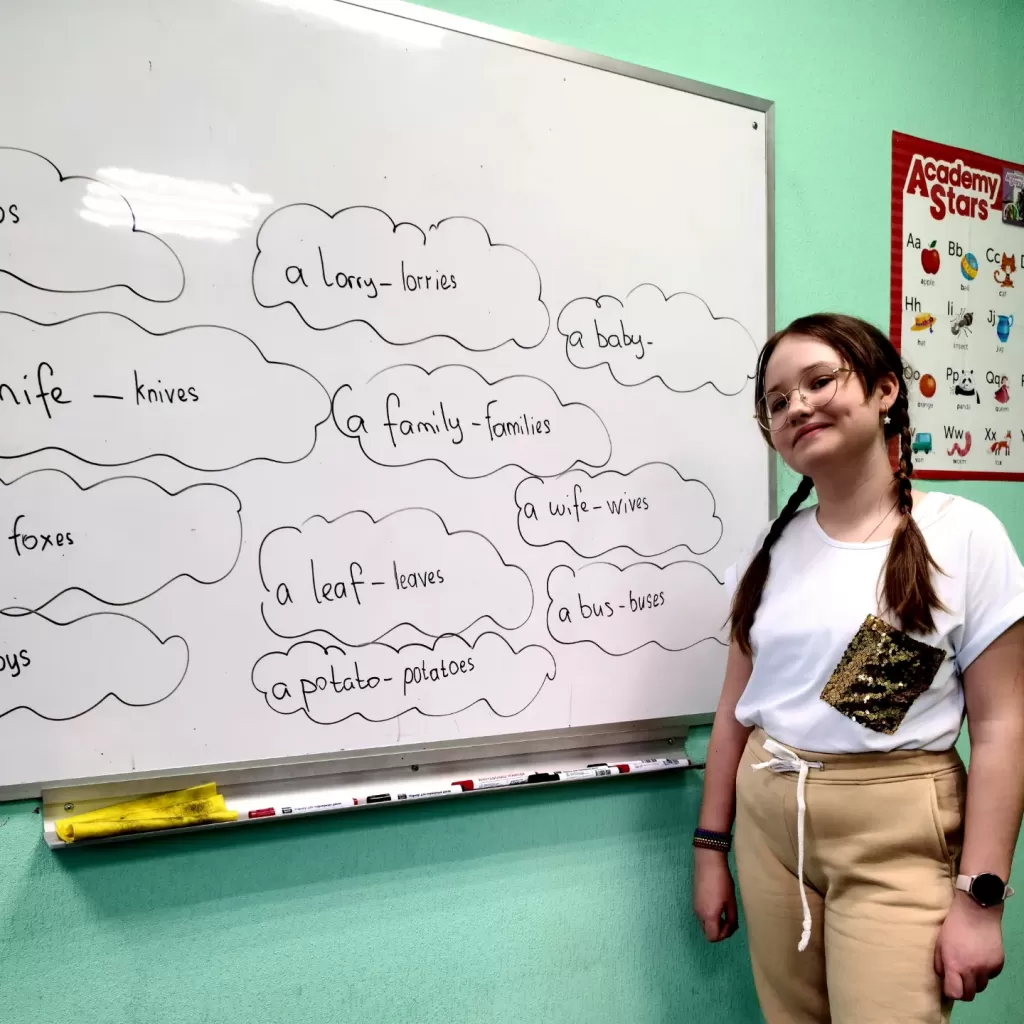 a lorry – lorries
a baby -
knives
a family – families
foxes
a wife – wives
a leaf – leaves
a bus - buses
a potato - potatoes
Academy
Stars
Aa Bb Cc
apple ball cat
Hh Ii Jj
hat insect jug
Oo Pp Qq
orange panda queen
Ww Xx
van worm fox